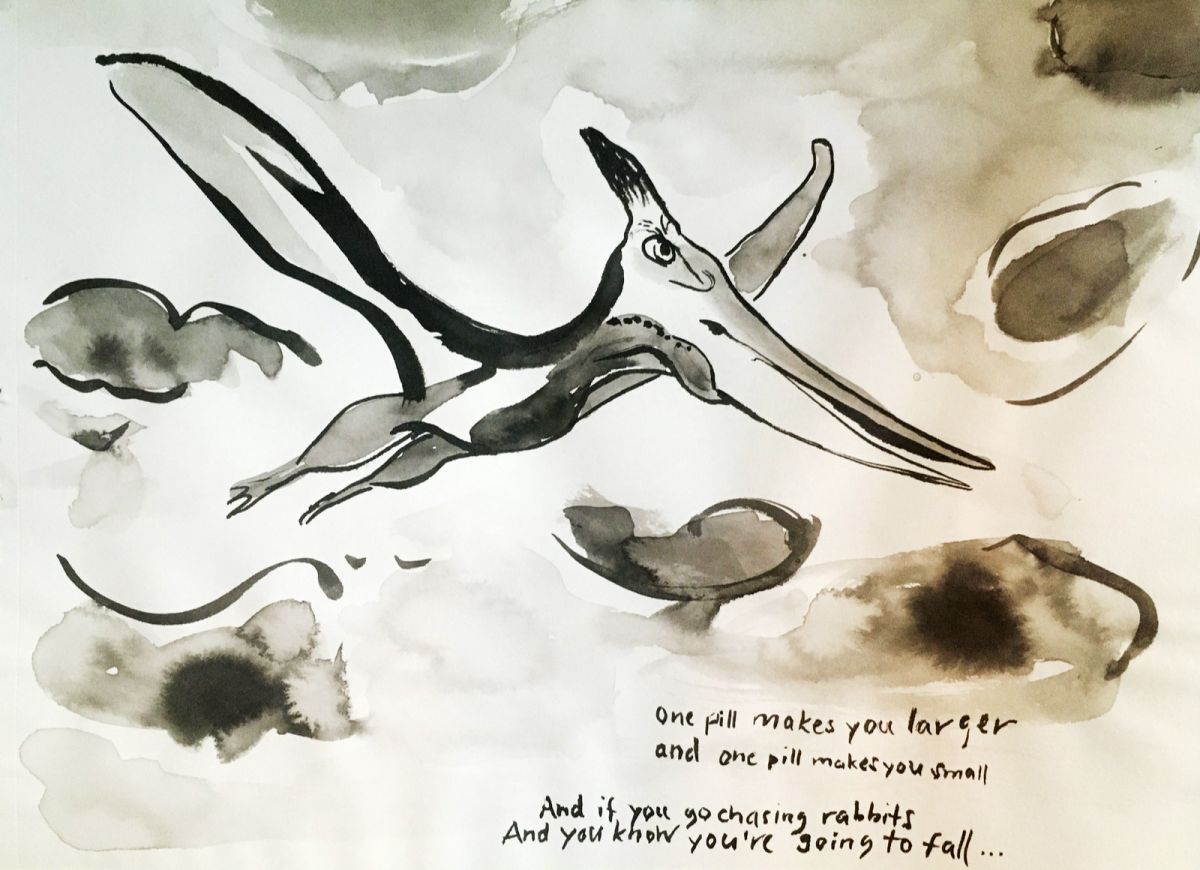 One pill makes you larger
and one pill makes you small
And if you go chasing rabbits
And you know you're going to fall...